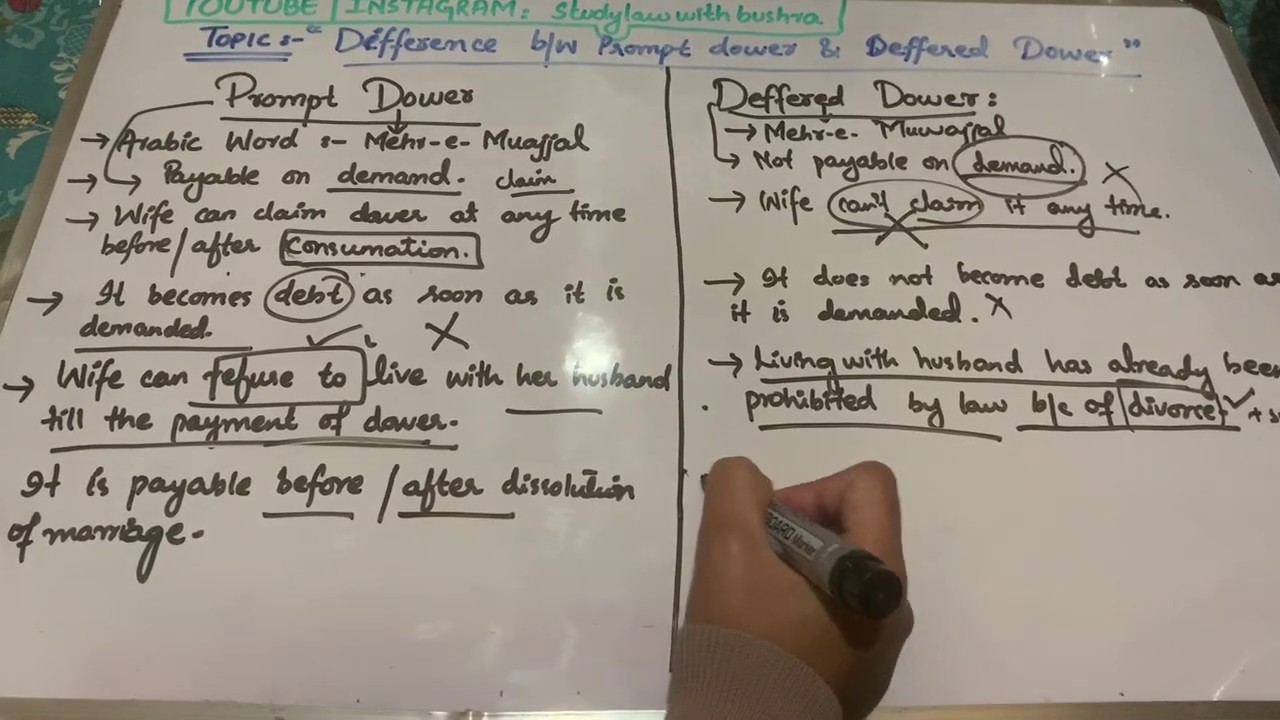 YOUTUBE | INSTAGRAM: Studylawwithbushra
TOPIC :- "Difference b/w Prompt dower & Deffered Dower"
Prompt Dower
→ Arabic Word :- Mehr-e- Muajjal
→ → Payable on demand. claim
→ Wife can claim dower at any time
before/after Consumation.
→ It becomes debt as soon as it is
demanded.
→ Wife can refuse to live with her husband
till the payment of dower.
It is payable before / after dissolution
of marriage.
Deffered Dower:
→ Mehr-e- Muwajjal
→ Not payable on demand. X
→ Wife can't claim it any time.
→ It does not become debt as soon as
it is demanded. X
→ Living with husband has already been
prohibited by law b/c of divorce
BOARD Marker